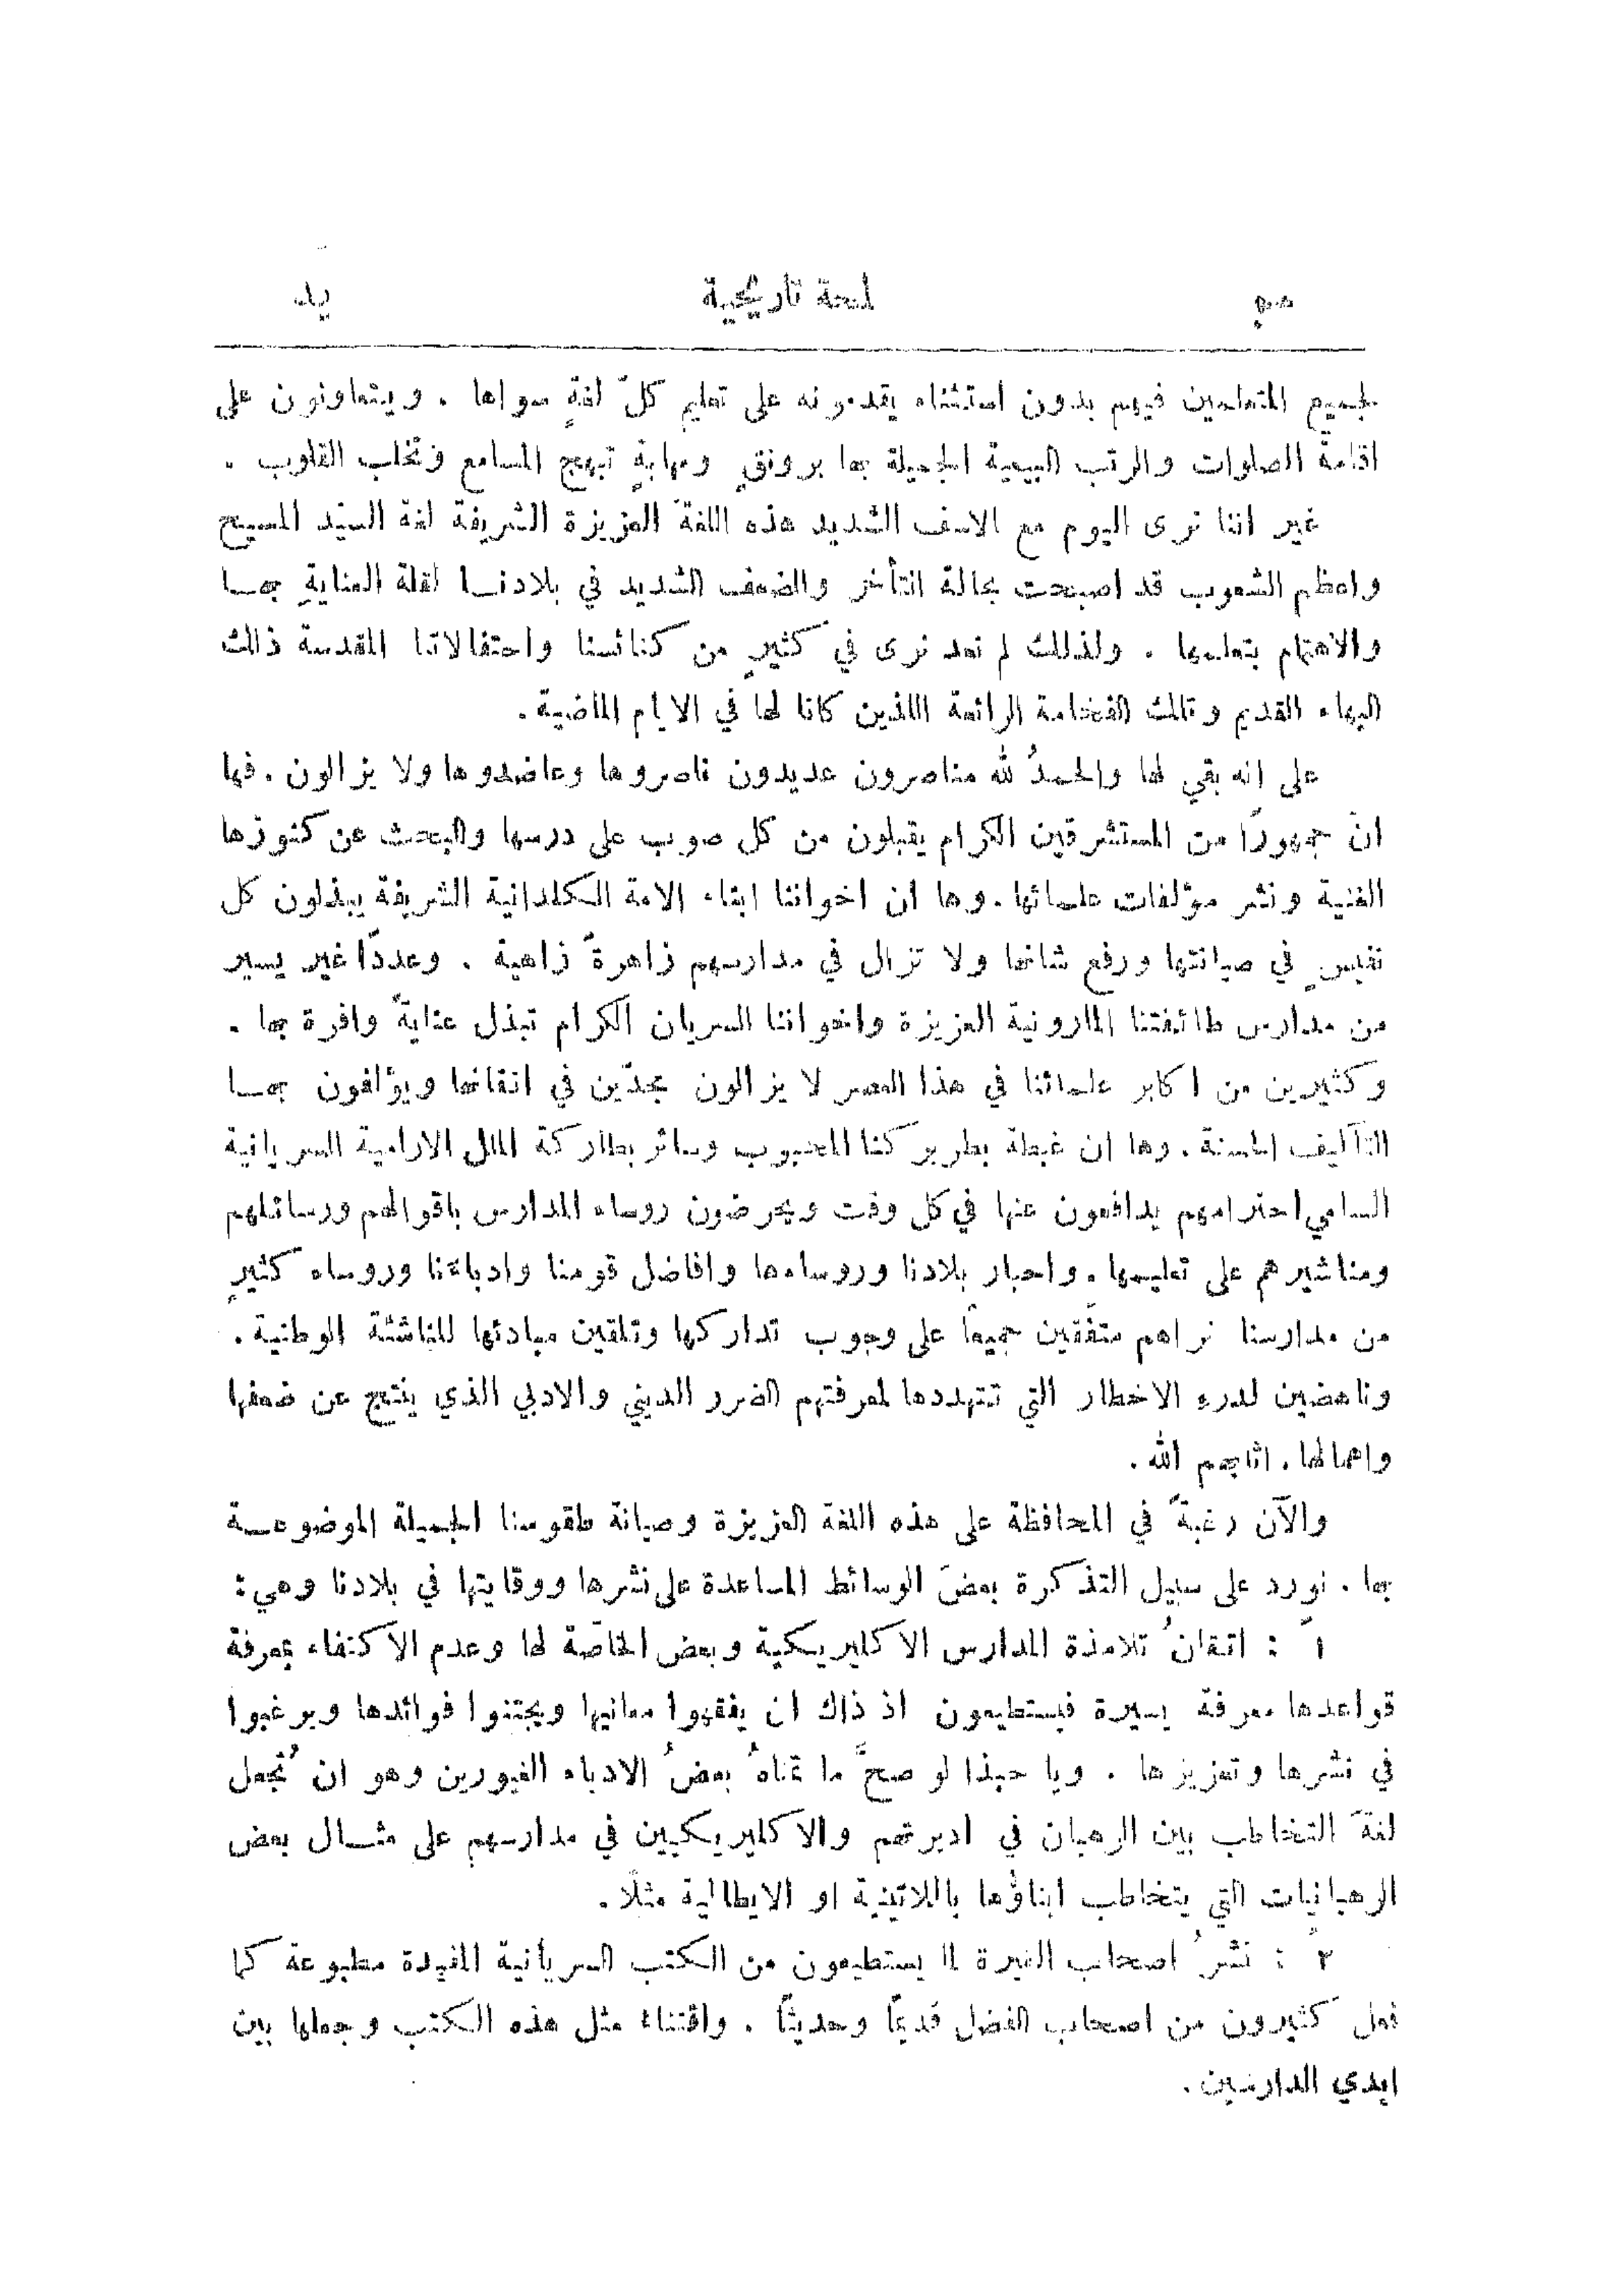 يد لمحة تاريخية
لجميع المتعلمين فيهم بدون استثناء يقدمونه على تعليم كلّ لغةٍ سواها . ويتعاونون على
اقامة الصلوات والرتب البيعية الجميلة بها برونقٍ ومهابةٍ تبهج المسامع وتخلب القلوب .
غير اننا نرى اليوم مع الاسف الشديد هذه اللغةَ العزيزة الشريفة لغة السيّد المسيح
واعظم الشعوب قد اصبحت بحالة التأخر والضعف الشديد في بلادنـا لقلة العنايةِ بهـا
والاهتمام بتعليمها . ولذلك لم نعد نرى في كثيرٍ من كنائسنا واحتفالاتنا المقدسة ذلك
البهاء القديم وتلك الفخامة الرائعة اللذين كانا لها في الايام الماضية .
على انه بقي لها والحمدُ لله مناصرون عديدون ناصروها وعاضدوها ولا يزالون . فها
انّ جمهورًا من المستشرقين الكرام يقبلون من كل صوب على درسها والبحث عن كنوزها
الغنية ونشر مؤلفات علمائها . وها ان اخواننا ابناء الامة الكلدانية الشريفة يبذلون كل
نفيسٍ في صيانتها ورفع شانها ولا تزال في مدارسهم زاهرةً زاهية . وعددًا غير يسير
من مدارس طائفتنا المارونية العزيزة واخواننا السريان الكرام تبذل عنايةً وافرة بها .
وكثيرين من اكابر علمائنا في هذا العصر لا يزالون مجدّين في اتقانها ويؤلفون بهـا
التآليف الحسنة . وها ان غبطة بطريركنا المحبوب وسائر بطاركة الملل الارامية السريانية
السامي احترامهم يدافعون عنها في كل وقت ويحرضون روساء المدارس باقوالهم ورسائلهم
ومناشيرهم على تعليمها . واحبار بلادنا وروساءها وافاضل قومنا وادباءَنا وروساء كثيرٍ
من مدارسنا نراهم متفقين جميعًا على وجوب تداركها وتلقين مبادئها للناشئة الوطنية .
وناهضين لدرء الاخطار التي تتهددها لمعرفتهم الضرر الديني والادبي الذي ينتج عن ضعفها
واهمالها . اثابهم الله .
والآن رغبةً في المحافظة على هذه اللغة العزيزة وصيانة طقوسنا الجميلة الموضوعـة
بها . نورد على سبيل التذكرة بعضَ الوسائط المساعدة على نشرها ووقايتها في بلادنا وهي :
١ً : اتقانُ تلامذة المدارس الاكليريكية وبعض الخاصّة لها وعدم الاكتفاء بمعرفة
قواعدها معرفة يسيرة فيستطيعون اذ ذاك ان يفقهوا معانيها ويجتنوا فوائدها ويرغبوا
في نشرها وتعزيزها . ويا حبذا لو صحَّ ما تمناهُ بعضُ الادباء الغيورين وهو ان تُجعل
لغةَ التخاطب بين الرهبان في اديرتهم والاكليريكيين في مدارسهم على مثـال بعض
الرهبانيات التي يتخاطب ابناؤها باللاتينية او الايطالية مثلًا .
٢ً : نشرُ اصحاب الغيرة لما يستطيعون من الكتب السريانية المفيدة مطبوعة كما
فعل كثيرون من اصحاب الفضل قديمًا وحديثًا . واقتناءُ مثل هذه الكتب وجعلها بين
ايدي الدارسين .